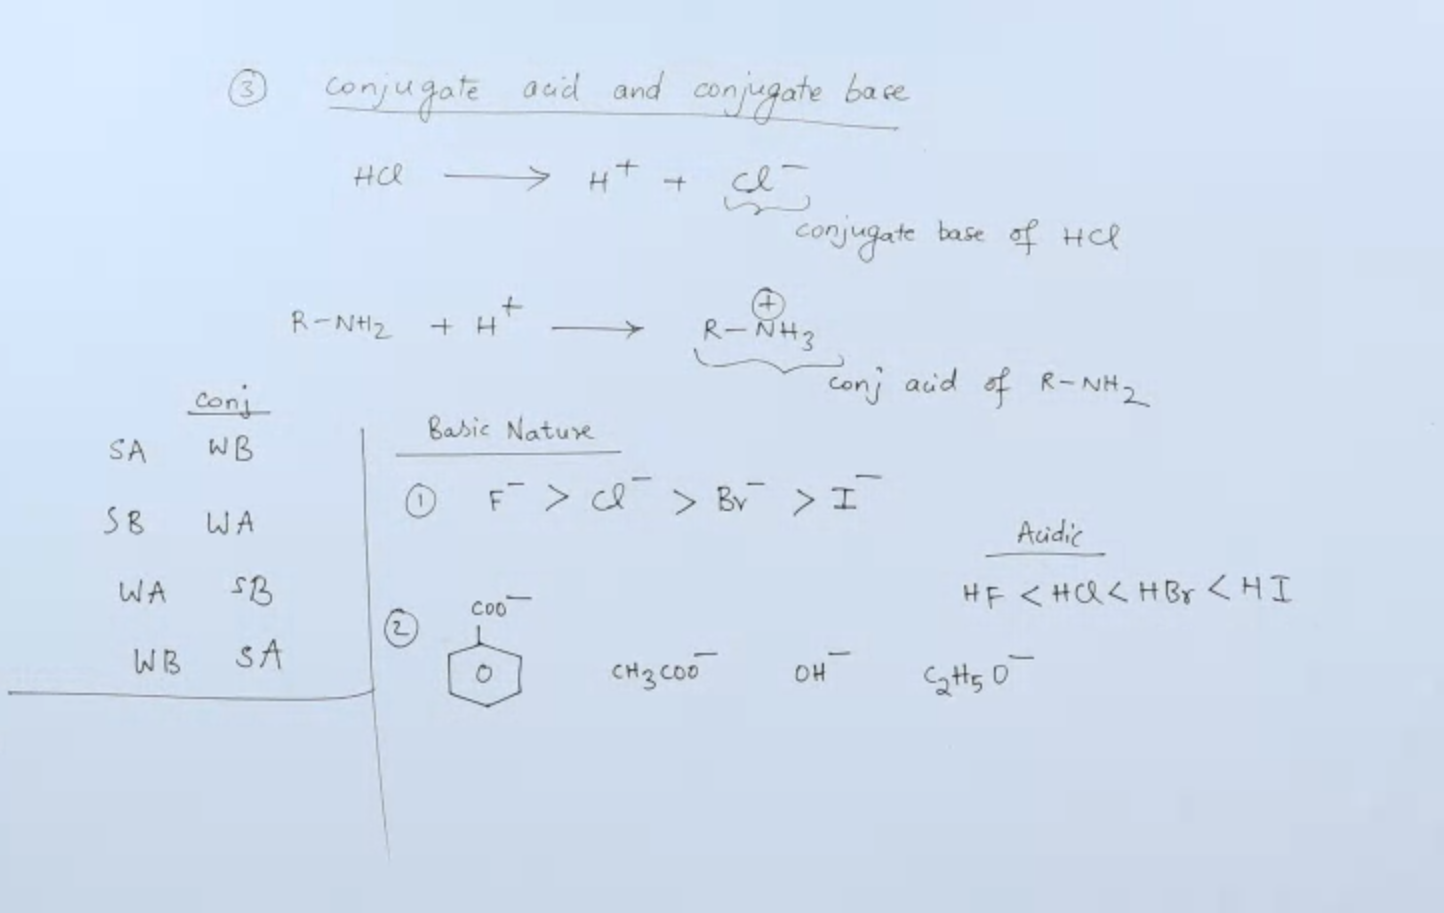 ③ conjugate acid and conjugate base
HCl ⟶ H⁺ + Cl⁻
conjugate base of HCl
R-NH₂ + H⁺ ⟶ R-N⊕H₃
conj acid of R-NH₂
conj
SA WB
SB WA
WA SB
WB SA
Basic Nature
① F⁻ > Cl⁻ > Br⁻ > I⁻
Acidic
HF < HCl < HBr < HI
② COO⁻ CH₃COO⁻ OH⁻ C₂H₅O⁻